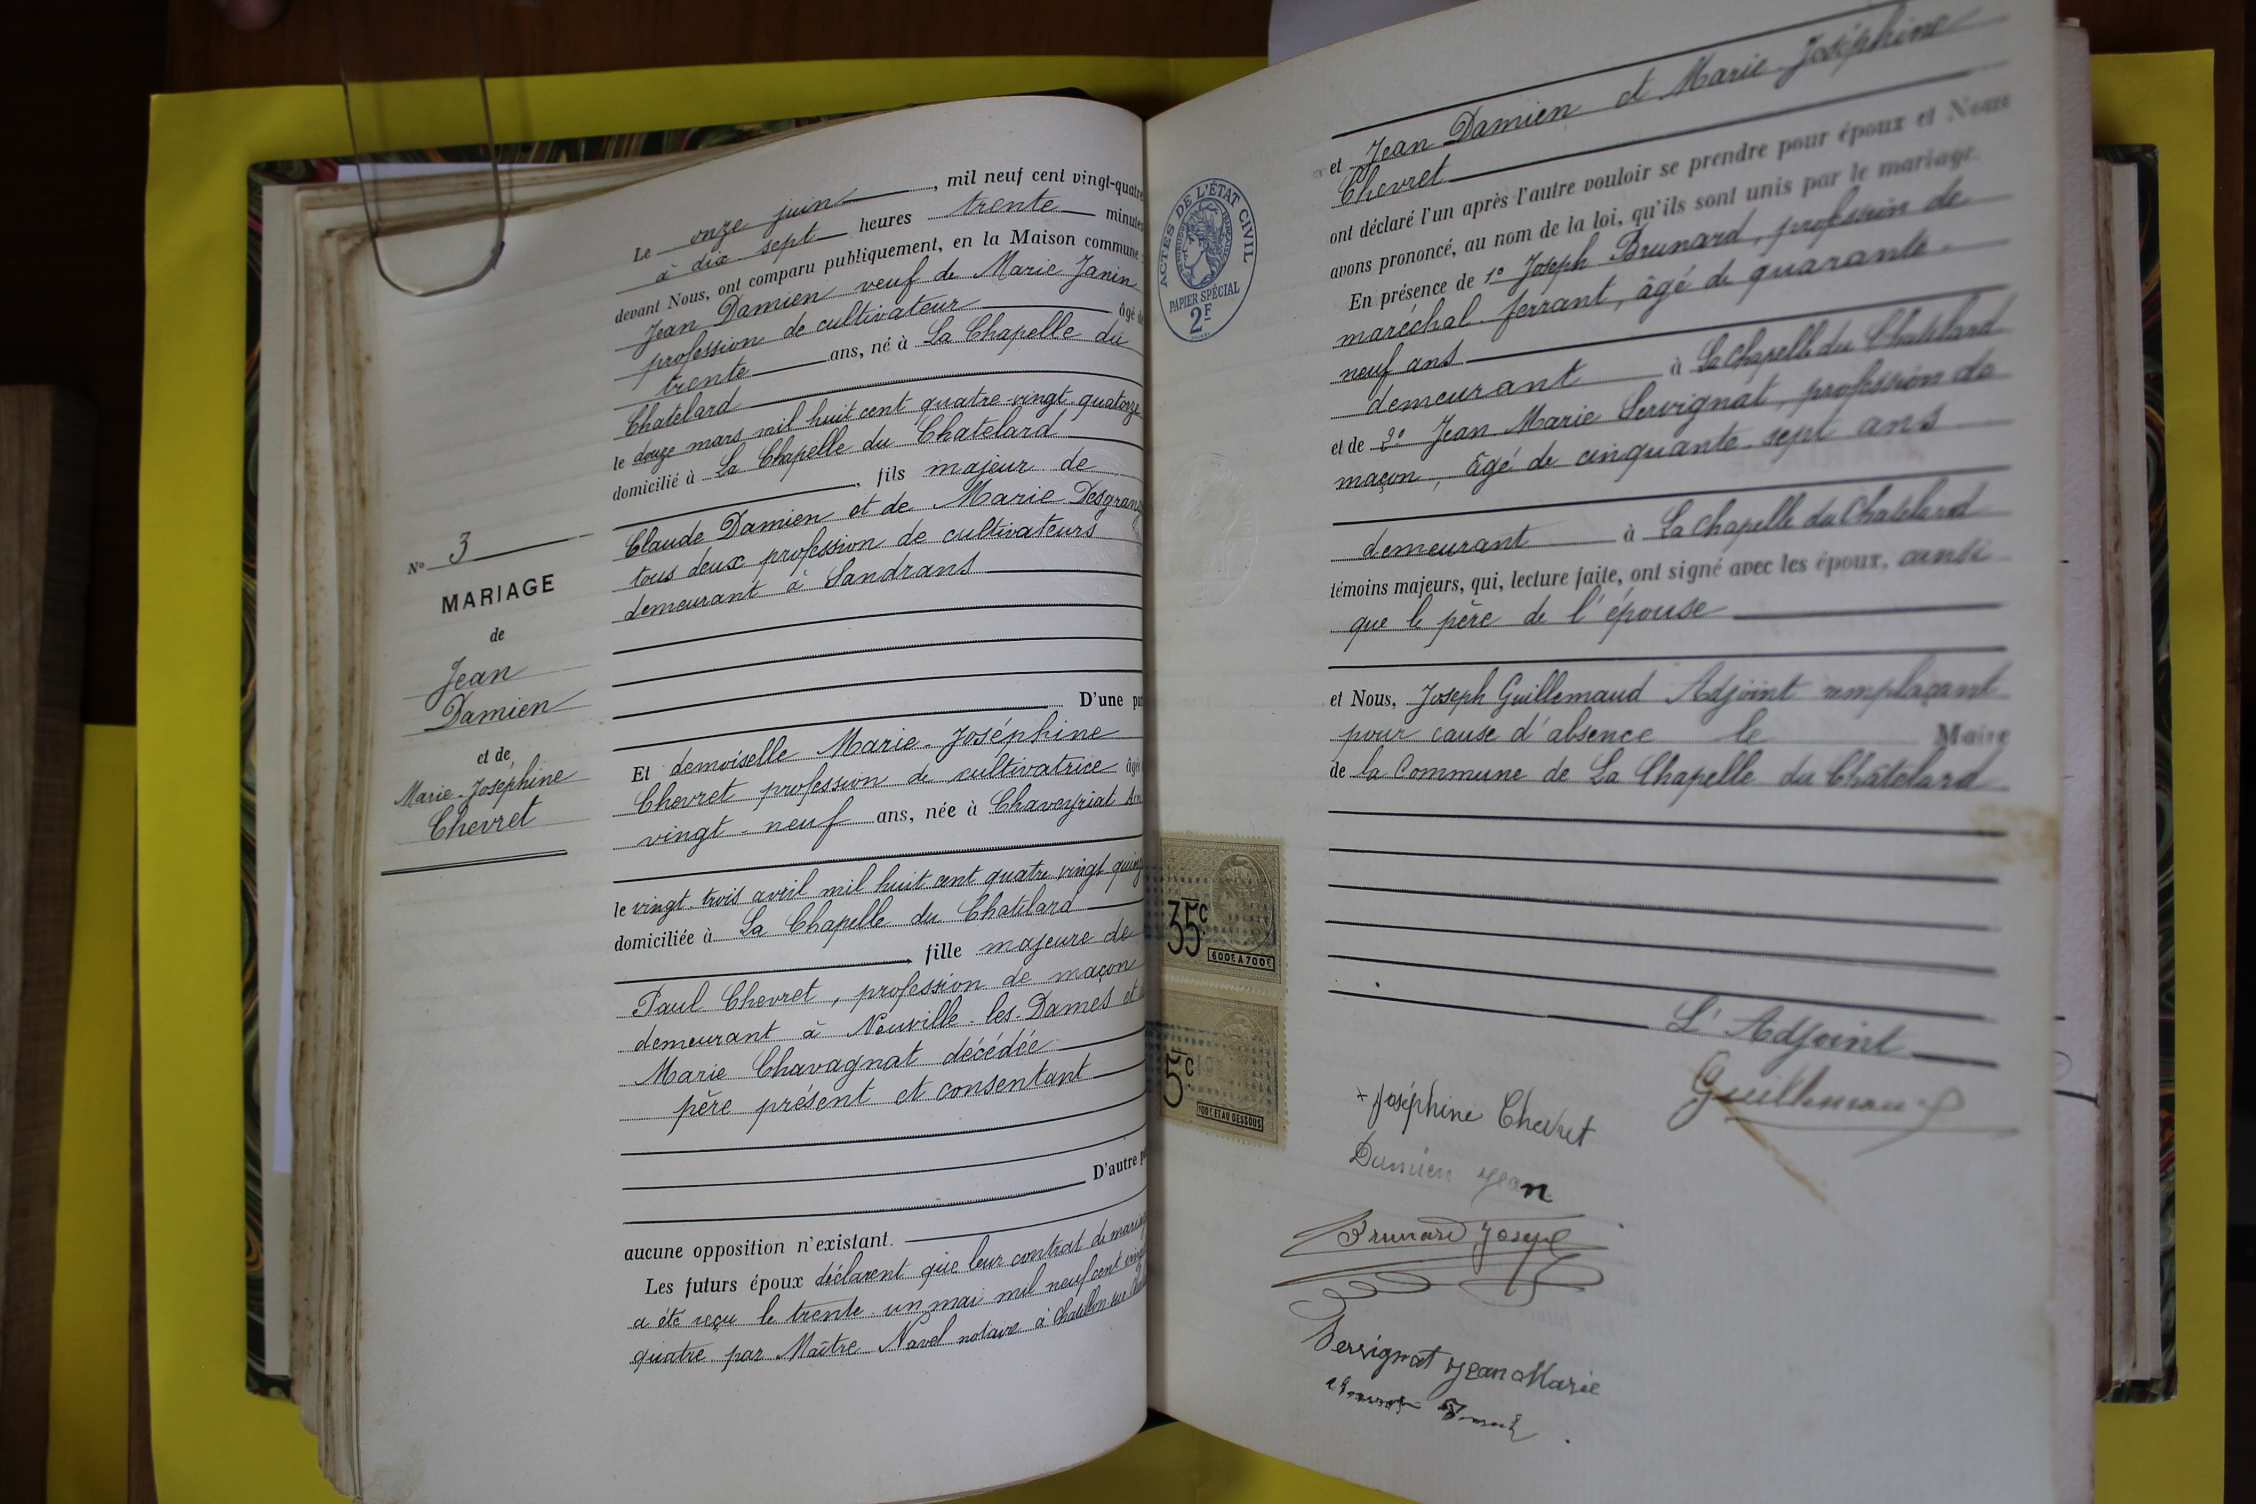 N° 3
MARIAGE
de
Jean
Damien
et de
Marie-Joséphine
Chevret
Le onze juin, mil neuf cent vingt-quatre
à dix-sept heures trente minutes
devant Nous, ont comparu publiquement, en la Maison commune
Jean Damien veuf de Marie Janin
profession de cultivateur âgé de
trente ans, né à La Chapelle du
Chatelard
le douze mars mil huit cent quatre-vingt-quatorze
domicilié à La Chapelle du Chatelard
, fils majeur de
Claude Damien et de Marie
tous deux profession de cultivateurs
demeurant à Sandrans
D'une par
Et demoiselle Marie-Joséphine
Chevret profession de cultivatrice âgé
vingt-neuf ans, née à Chaveyriat Ain
le vingt-trois avril mil huit cent quatre vingt quinz
domiciliée à La Chapelle du Chatelard
, fille majeure de
Paul Chevret, profession de maçon
demeurant à Neuville-les-Dames et
Marie Chavagnat décédée
père présent et consentant
D'autre p
aucune opposition n'existant.
Les futurs époux déclarent que leur contrat de mariag
a été reçu le trente-un mai mil neuf cent ving
quatre par Maître Navel notaire à Chatillon sur
ACTES DE L'ÉTAT CIVIL
PAPIER SPÉCIAL
2F
35c
600F A 700F
5c
100F ET AU DESSOUS
et Jean Damien et Marie-Joséphine
Chevret
ont déclaré l'un après l'autre vouloir se prendre pour époux et Nous
avons prononcé, au nom de la loi, qu'ils sont unis par le mariage.
En présence de 1° Joseph Brunard, profession de
maréchal-ferrant, âgé de quarante-
neuf ans
demeurant à La Chapelle du Chatelard
et de 2° Jean Marie Servignat, profession de
maçon, âgé de cinquante-sept ans
demeurant à La Chapelle du Chatelard
témoins majeurs, qui, lecture faite, ont signé avec les époux, ainsi
que le père de l'épouse
et Nous, Joseph Guillemaud Adjoint remplaçant
pour cause d'absence le Maire
de la Commune de La Chapelle du Châtelard
L'Adjoint
Guillemaud
Joséphine Chevret
Damien Jean
Brunard Joseph
Servignat Jean Marie